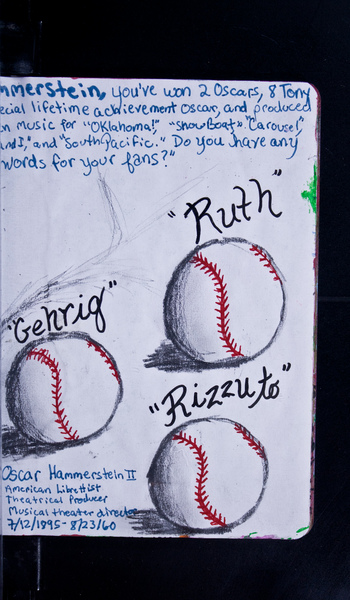 mmerstein, you've won 2 Oscars, 8 Tony
ecial lifetime achievement Oscar, and produced
on music for "Oklahoma!", "Show Boat", "Carousel",
and I," and "South Pacific." Do you have any
words for your fans?"
"Ruth"
"Gehrig"
"Rizzuto"
Oscar Hammerstein II
American Librettist
Theatrical Producer
Musical theater director
7/12/1895 - 8/23/60